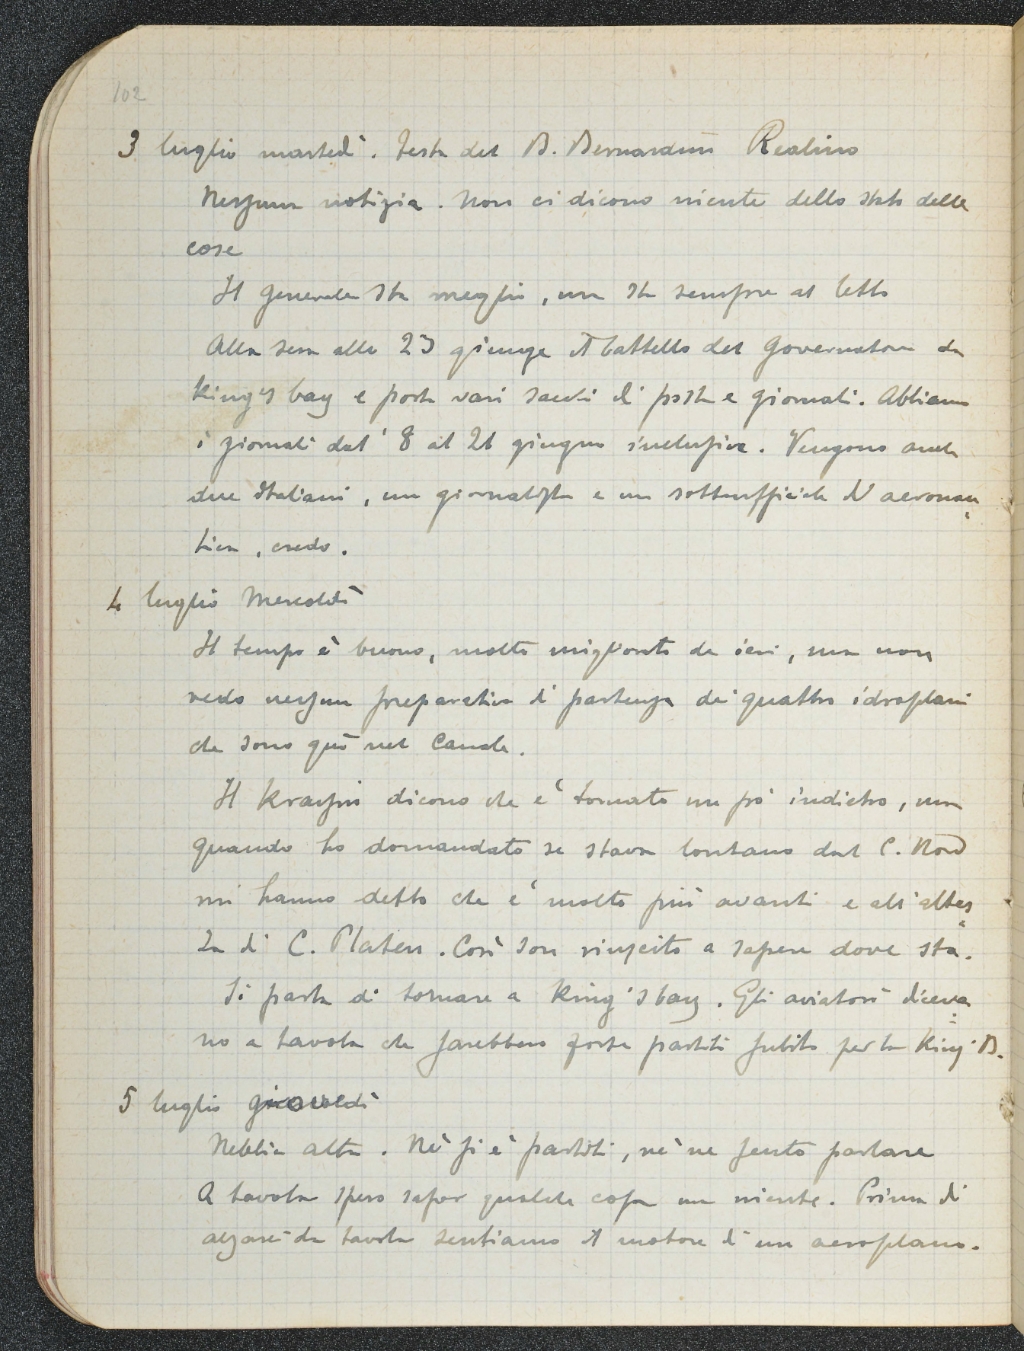 102
3 luglio martedì. Festa del B. Bernardino Realino
Nessuna notizia. Non ci dicono niente dello stato delle
cose
Il generale sta meglio, ma sta sempre al letto
Alla sera alle 23 giunge il battello del Governatore da
King's bay e porta vari sacchi di posta e giornali. Abbiamo
i giornali dal 8 al 21 giugno inclusive. Vengono anche
due Italiani, un giornalista e un sottufficiale d'aeronau„
tica, credo.
4 luglio Mercoldì
Il tempo è buono, molto migliorato da ieri, ma non
vedo nessun preparativo di partenza dei quattro idroplani
che sono quì nel Canale.
Il Krassin dicono che è tornato un pò indietro, ma
quando ho domandato se stava lontano dal C. Nord
mi hanno detto che è molto più avanti e all'altez„
za di C. Platen. Così son riuscito a sapere dove sta.
Si parla di tornare a King'sbay. Gli aviatori diceva„
no a tavola che sarebbero forse partiti subito per la King' B.
5 luglio giovedì
Nebbia alta. Nè si è partiti, nè ne sento parlare
A tavola spero saper qualche cosa ma niente. Prima di
alzarci da tavola sentiamo il motore di un aeroplano.